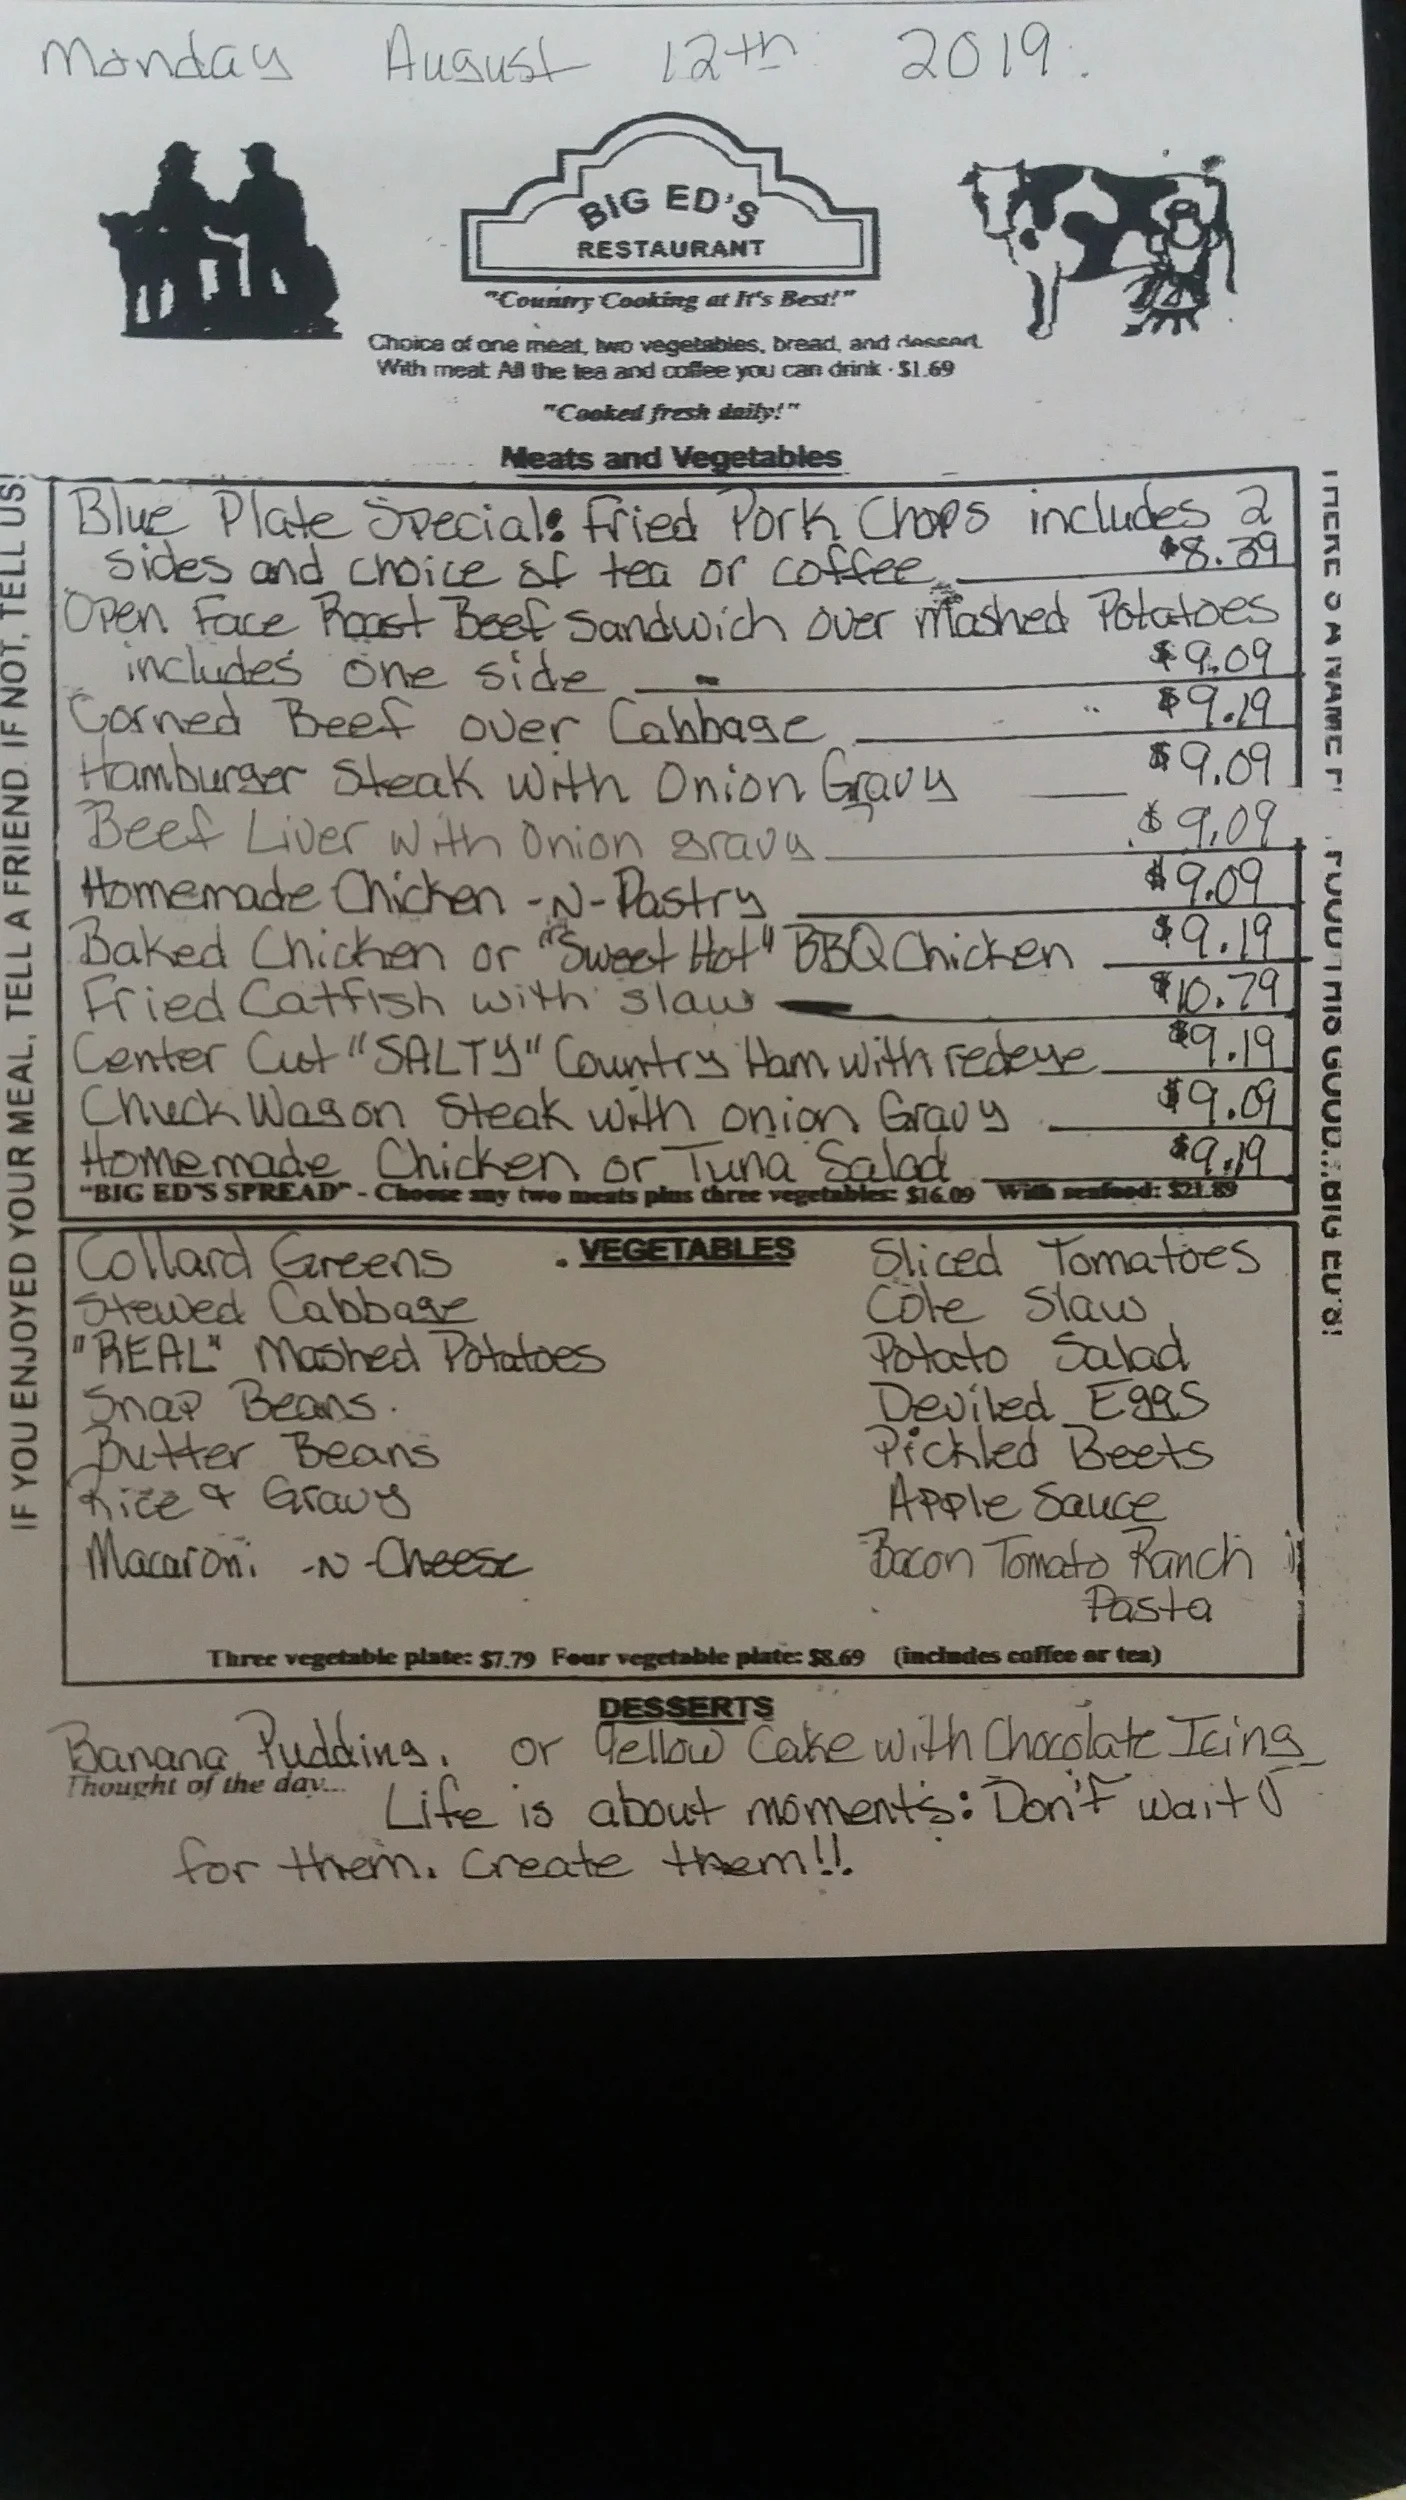 Monday August 12th 2019.
BIG ED'S
RESTAURANT
"Country Cooking at It's Best!"
Choice of one meat, two vegetables, bread, and dessert.
With meat: All the tea and coffee you can drink - $1.69
"Cooked fresh daily!"
Meats and Vegetables
Blue Plate Special: Fried Pork Chops includes 2
sides and choice of tea or coffee $8.39
Open Face Roast Beef Sandwich over Mashed Potatoes
includes one side $9.09
Corned Beef over Cabbage $9.19
Hamburger Steak with Onion Gravy $9.09
Beef Liver with Onion gravy $9.09
Homemade Chicken -N- Pastry $9.09
Baked Chicken or "Sweet Hot" BBQ Chicken $9.19
Fried Catfish with slaw $10.79
Center Cut "SALTY" Country Ham with redeye $9.19
Chuck Wagon Steak with onion Gravy $9.09
Homemade Chicken or Tuna Salad $9.19
"BIG ED'S SPREAD" - Choose any two meats plus three vegetables: $16.09 With seafood: $21.89
VEGETABLES
Collard Greens
Stewed Cabbage
"REAL" Mashed Potatoes
Snap Beans.
Butter Beans
Rice & Gravy
Macaroni -N- Cheese
Sliced Tomatoes
Cole Slaw
Potato Salad
Deviled Eggs
Pickled Beets
Apple Sauce
Bacon Tomato Ranch
Pasta
Three vegetable plate: $7.79 Four vegetable plate: $8.69 (includes coffee or tea)
DESSERTS
Banana Pudding. or Yellow Cake with Chocolate Icing
Thought of the day...
Life is about moments: Don't wait
for them. Create them!!
IF YOU ENJOYED YOUR MEAL, TELL A FRIEND. IF NOT, TELL US!
THERE'S A NAME F FOOD THIS GOOD...BIG ED'S!